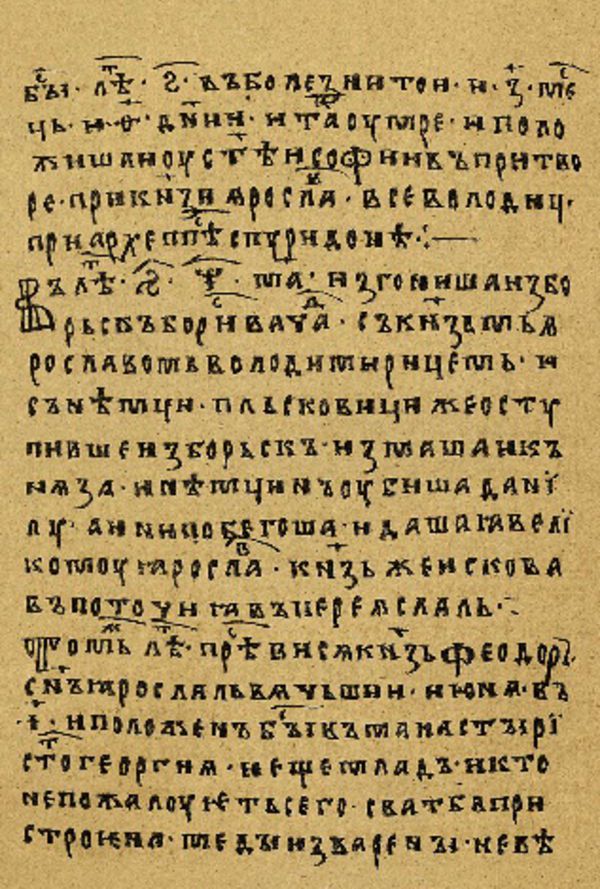 бы҃ · лѣ҃ · ѕ҃ · въболезнитои · и · з҃ · мс҃
ць · и · ѳ҃ · дн҃ии · итаоумре · иполо
жишаиоуст҃ѣисофиивъпритво
ре · прикн҃зиꙗросла҃ · всеволодиц ·
приархеп҃пѣспуридонѣ ·:—
Въ лѣ҃ · ѕ҃ · ѱ҃ · ма҃ · изгонишаизбо
рьскъбориⷭ҇вачаⷣ · съкн҃зьмьꙗ
рославомьволодимирицемь · и
сънѣмци · пльсковицижеосту
пившеизборьскъ · измашаикъ
нѧза · инѣмцинъоубишадани
лу · аинииобегоша · идашаꙗвели
комоуꙗросла҃ · кн҃зьжеисkова
въпотоуиꙗвъпереꙗслаль ·:
Томь лѣ҃ · прѣвисѧкн҃зьфеодоръ
сн҃ъꙗрославльвѧчьшии · июнѧ · въ
· і҃ · иположенъбы҃въманастыри
ст҃огеоргиѧ · иещемладъ · икто
непожалоуѥтьсего · сватбапри
строѥна · медыизварены · невѣ